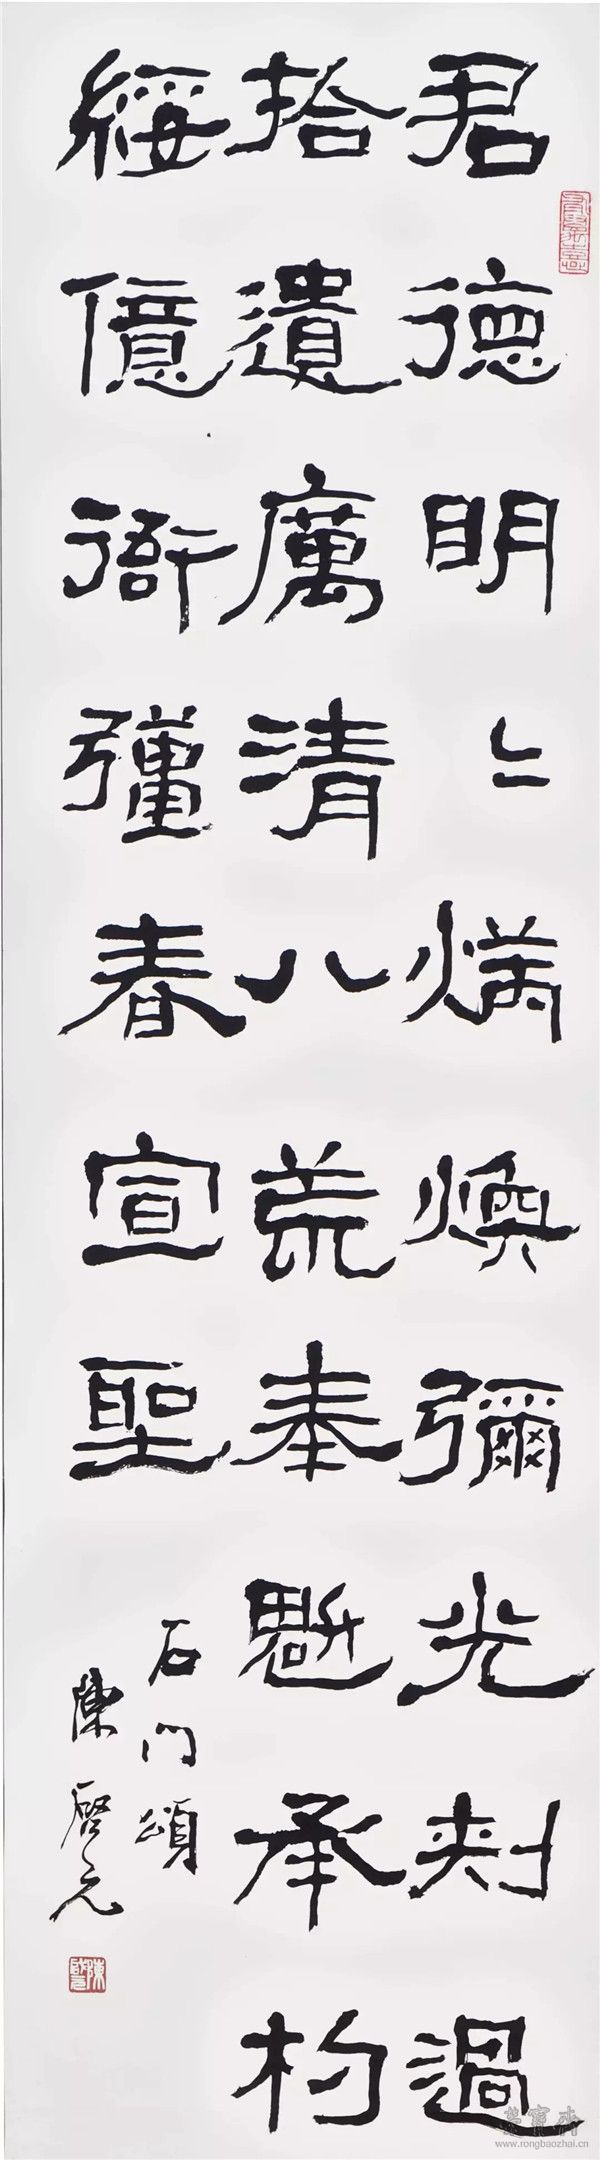 君德明〻炳煥彌光刾過
拾遺厲清八荒奉魁承杓
綏億衙彊春宣聖
石門頌
陳啓元
榮寶齋
www.rongbaozhai.cn